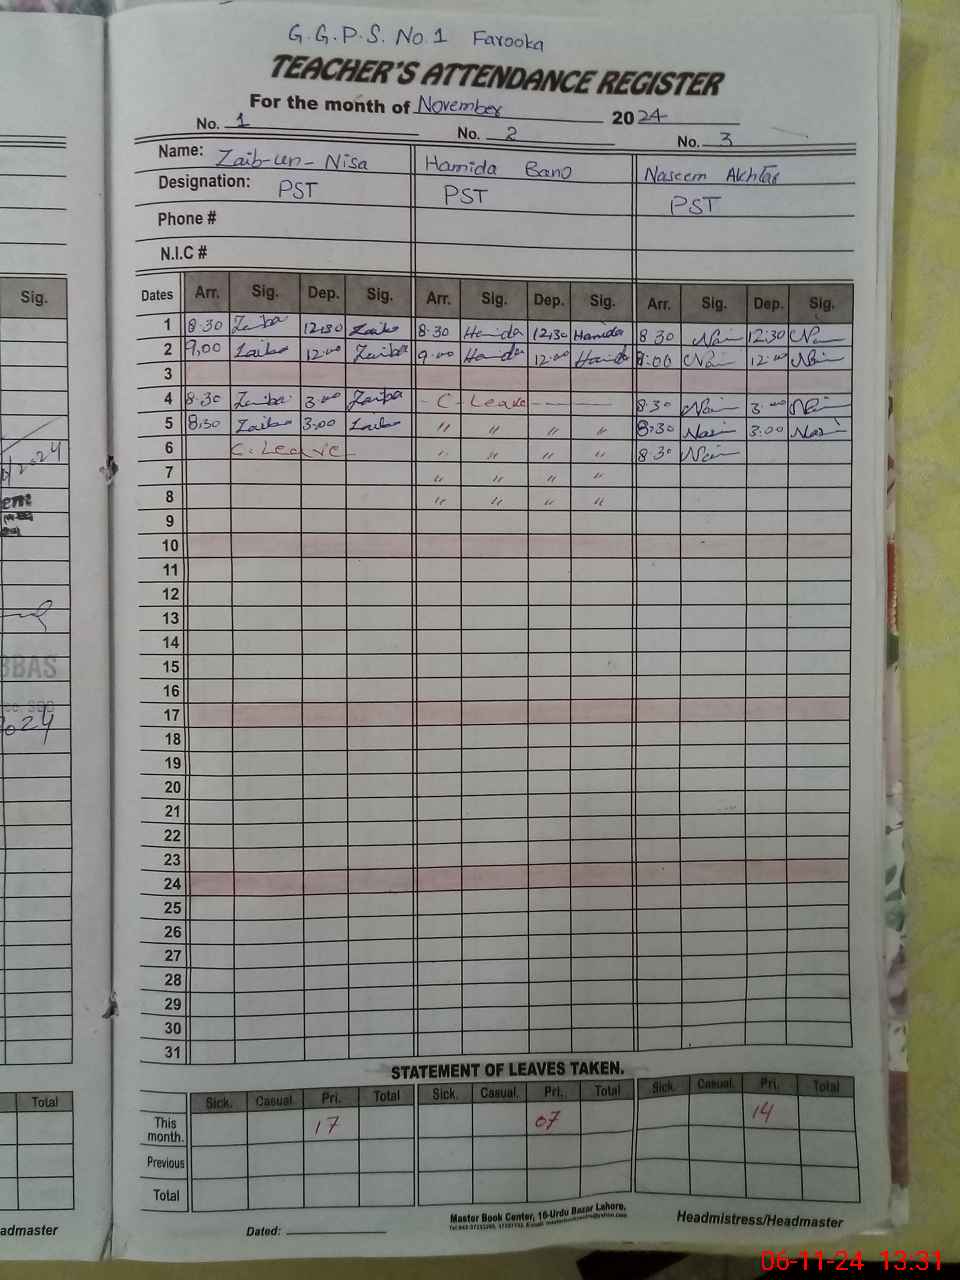 G.G.P.S. No.1 Farooka
TEACHER'S ATTENDANCE REGISTER
For the month of November 2024
No. 1 No. 2 No. 3
Name: Zaib-un-Nisa Hamida Bano Naseem Akhtar
Designation: PST PST PST
Phone #
N.I.C #
Sig. Dates Arr. Sig. Dep. Sig. Arr. Sig. Dep. Sig. Arr. Sig. Dep. Sig.
1 8.30 Zaiba 12:30 Zaiba 8.30 Hamida 12:30 Hamida 8 30 12:30
2 9,00 Zaiba 12.00 Zaiba 9.00 Hamida 12.00 Hamida 9:00 12.00
3
4 8.30 Zaiba 3.00 Zaiba - C - Leave - 8.30 3.00
5 8.30 Zaiba 3.00 Zaiba " " " " 8:30 3.00
6 C. Leave " " " " 8.30
7 " " " "
8 " " " "
9
10
11
12
13
14
15
16
17
18
19
20
21
22
23
24
25
26
27
28
29
30
31
STATEMENT OF LEAVES TAKEN.
Total Sick. Casual. Pri. Total Sick. Casual. Pri. Total Sick. Casual. Pri. Total
This month. 17 07 14
Previous
Total
admaster Dated: Master Book Center, 16-Urdu Bazar Lahore. Headmistress/Headmaster
2024
BBAS
2024
06-11-24 13:31